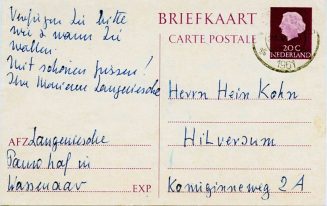 BRIEFKAART
CARTE POSTALE
20 C
NEDERLAND
1961
Verfügen Sie bitte
wie & wann Sie
wollen.
Mit schönen Grüssen!
Ihre Marianne Langewiesche
Herrn Hein Kohn
Hilversum
Koninginneweg 2A
AFZ Langewiesche
Pauw hof in
Wassenaar
EXP